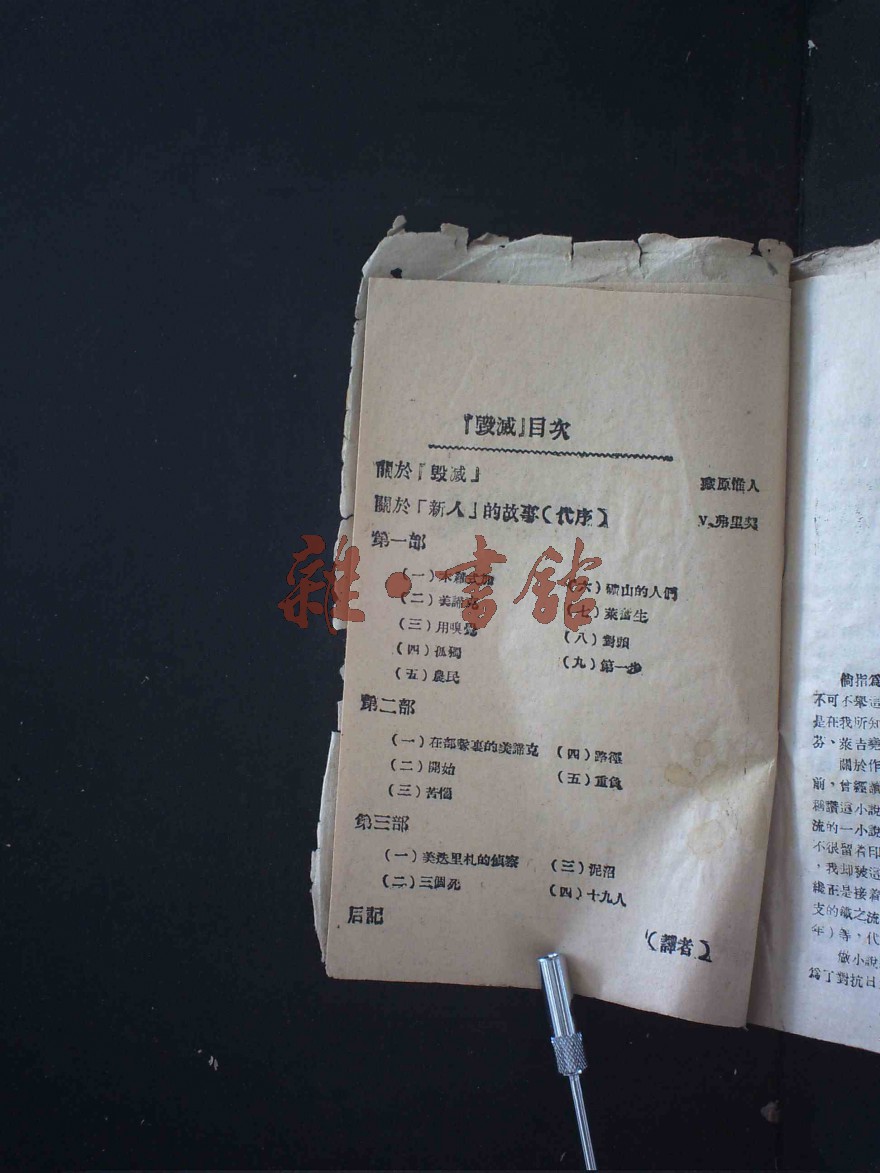 『毀滅』目次
關於『毀滅』 藏原惟人
關於「新人」的故事(代序) V.弗里契
第一部
(一)木羅式加
(二)美諦克
(三)用嗅覺
(四)孤獨
(五)農民
(六)礦山的人們
(七)萊奮生
(八)對頭
(九)第一步
第二部
(一)在部隊裏的美諦克
(二)開始
(三)苦惱
(四)路徑
(五)重負
第三部
(一)美迭里札的偵察
(二)三個死
(三)泥沼
(四)十九人
后記
(譯者)
雜·書館
倘指為
不可不舉這
是在我所知
芬、萊吉堯
關於作
前,曾經讀
稱讚這小說
流的一小說
不很留着印
,我却被這
纔正是接着
支的鐵之流
年)等,代
做小說
為了對抗日